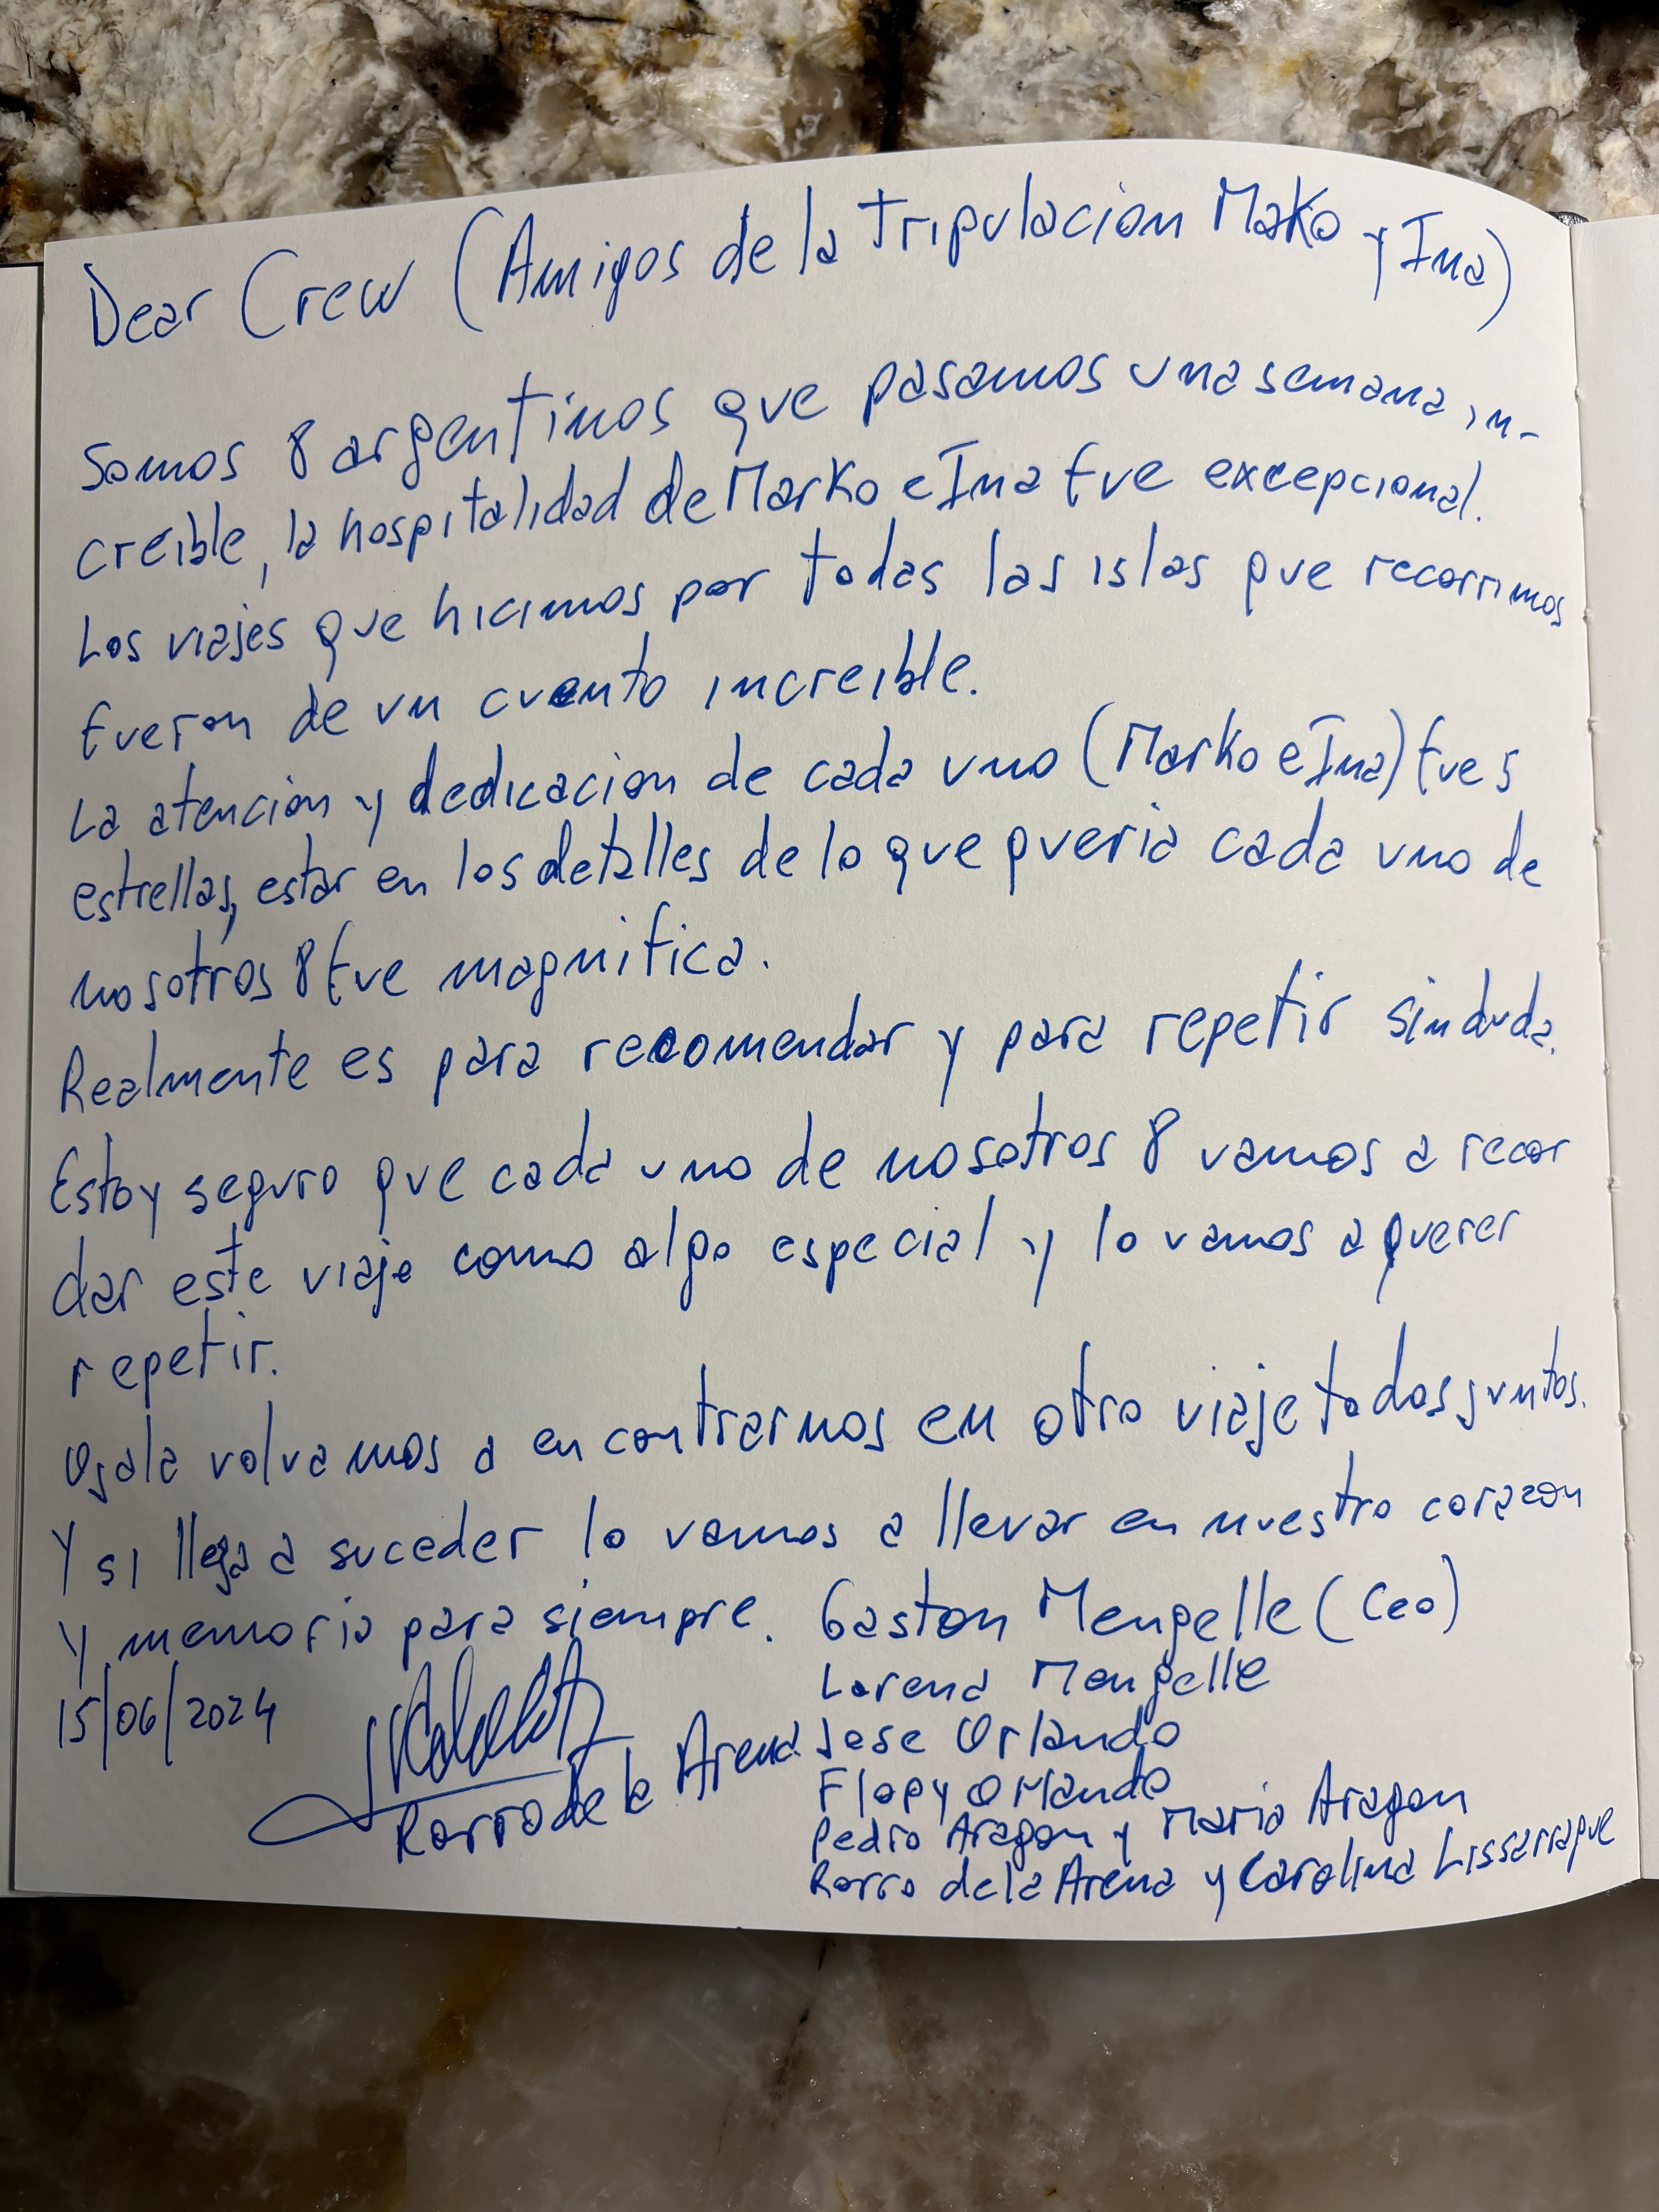 Dear Crew (Amigos de la Tripulacion Mako y Ina)
Somos 8 argentinos que pasamos una semana in-
creible, la hospitalidad de Marko e Ina fue excepcional.
Los viajes que hicimos por todas las islas que recorrimos
fueron de un cuento increible.
La atencion y dedicacion de cada uno (Marko e Ina) fue 5
estrellas, estar en los detalles de lo que queria cada uno de
nosotros 8 fue magnifica.
Realmente es para recomendar y para repetir sin duda.
Estoy seguro que cada uno de nosotros 8 vamos a recor
dar este viaje como algo especial y lo vamos a querer
repetir.
Ojala volvamos a encontrarnos en otro viaje todos juntos.
Y si llega a suceder lo vamos a llevar en nuestro corazon
Y memoria para siempre. Gaston Mengelle (Ceo)
Lorena Mengelle
15/06/2024
Rorro de la Arena
Jose Orlando
Flopy Orlando
Pedro Aragon y Maria Aragon
Rorro de la Arena y Carolina Lissarrague